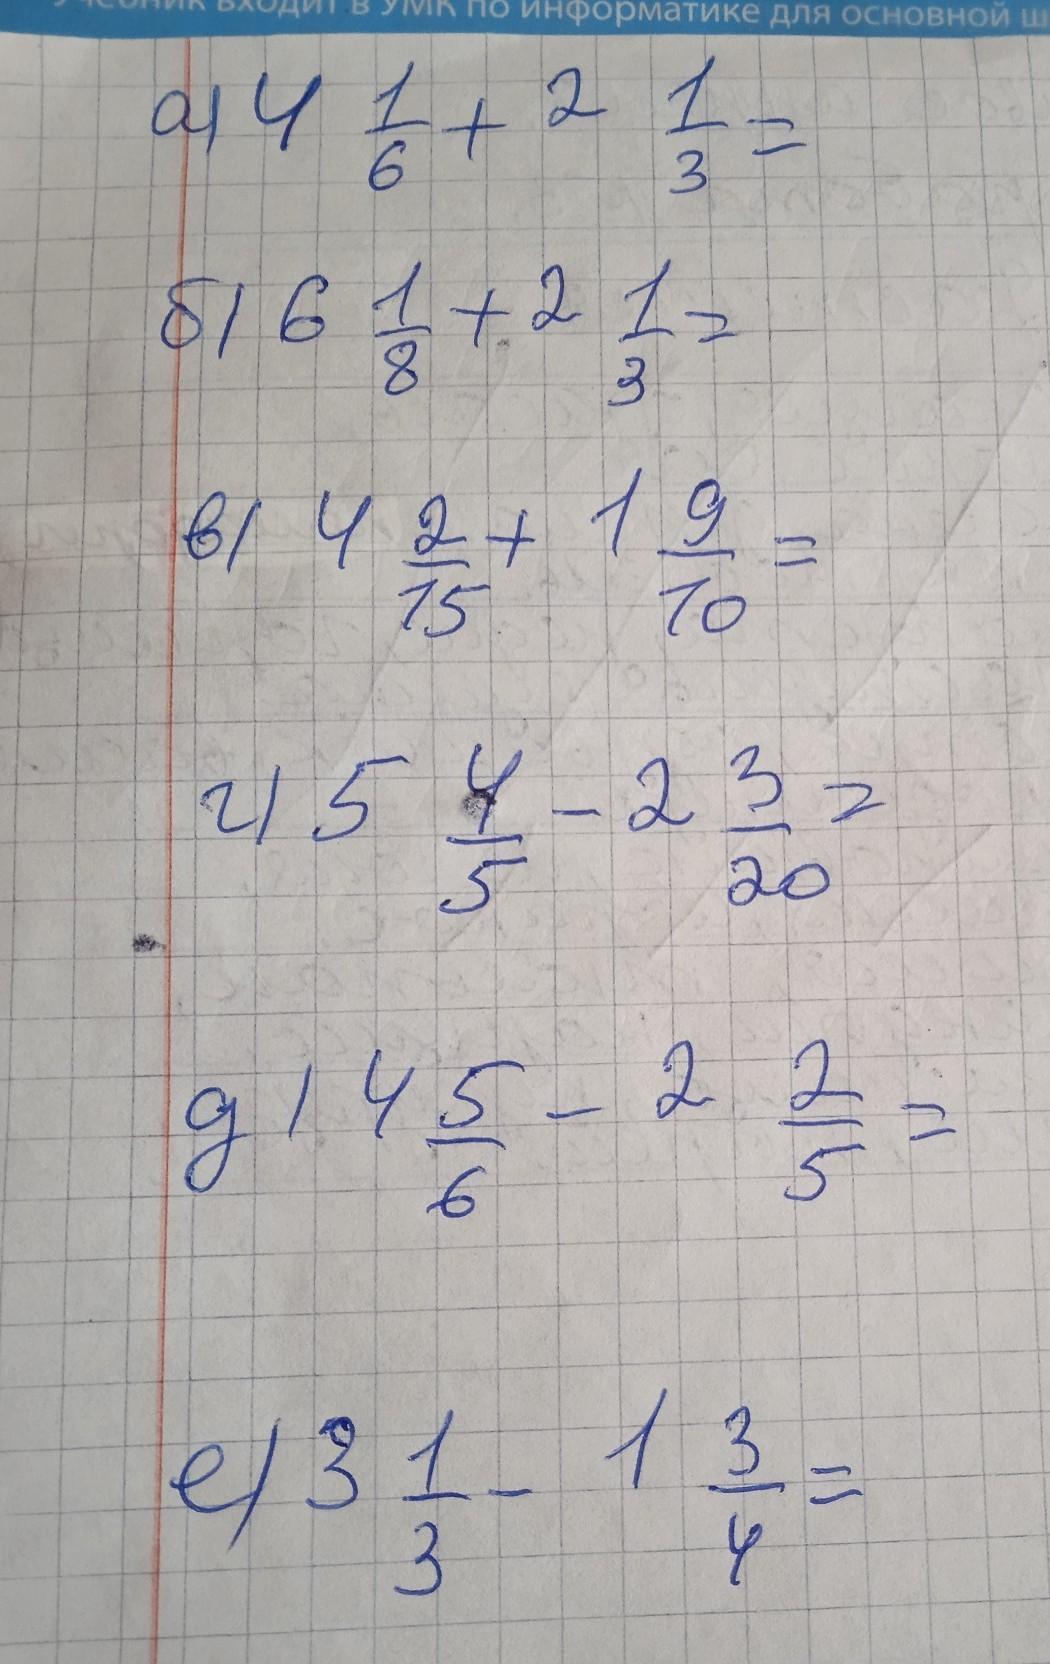 Учебник входит в УМК по информатике для основной ш
а) 4 1/6 + 2 1/3 =
б) 6 1/8 + 2 1/3 =
в) 4 2/15 + 1 9/10 =
г) 5 4/5 - 2 3/20 =
д) 4 5/6 - 2 2/5 =
е) 3 1/3 - 1 3/4 =